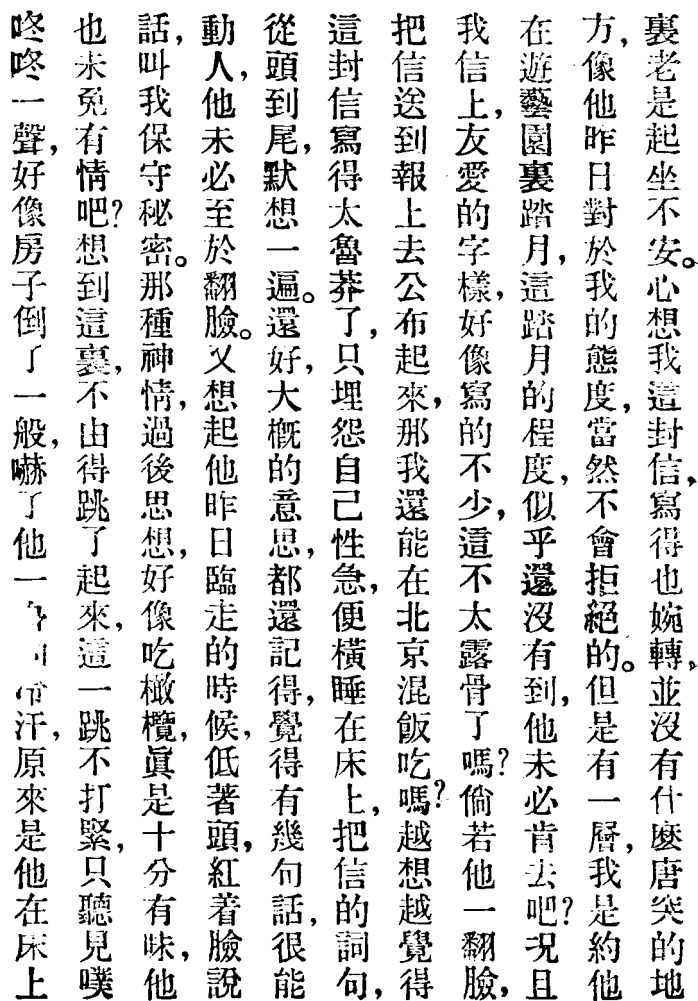 裏老是起坐不安。心想我這封信，寫得也婉轉，並沒有什麼唐突的地
方，像他昨日對於我的態度，當然不會拒絕的。但是有一層，我是約他
在遊藝園裏踏月，這踏月的程度，似乎還沒有到，他未必肯去吧？况且
我信上，友愛的字樣，好像寫的不少，這不太露骨了嗎？倘若他一翻臉，
把信送到報上去公布起來，那我還能在北京混飯吃嗎？越想越覺得
這封信寫得太魯莽了，只埋怨自己性急，便橫睡在床上，把信的詞句，
從頭到尾，默想一遍。還好，大概的意思，都還記得，覺得有幾句話，很能
動人，他未必至於翻臉。又想起他昨日臨走的時候，低著頭，紅着臉說
話，叫我保守秘密。那種神情，過後思想，好像吃橄欖，眞是十分有味，他
也未免有情吧？想到這裏，不由得跳了起來，這一跳不打緊，只聽見噗
咚咚一聲，好像房子倒了一般，嚇了他一汗，原來是他在床上